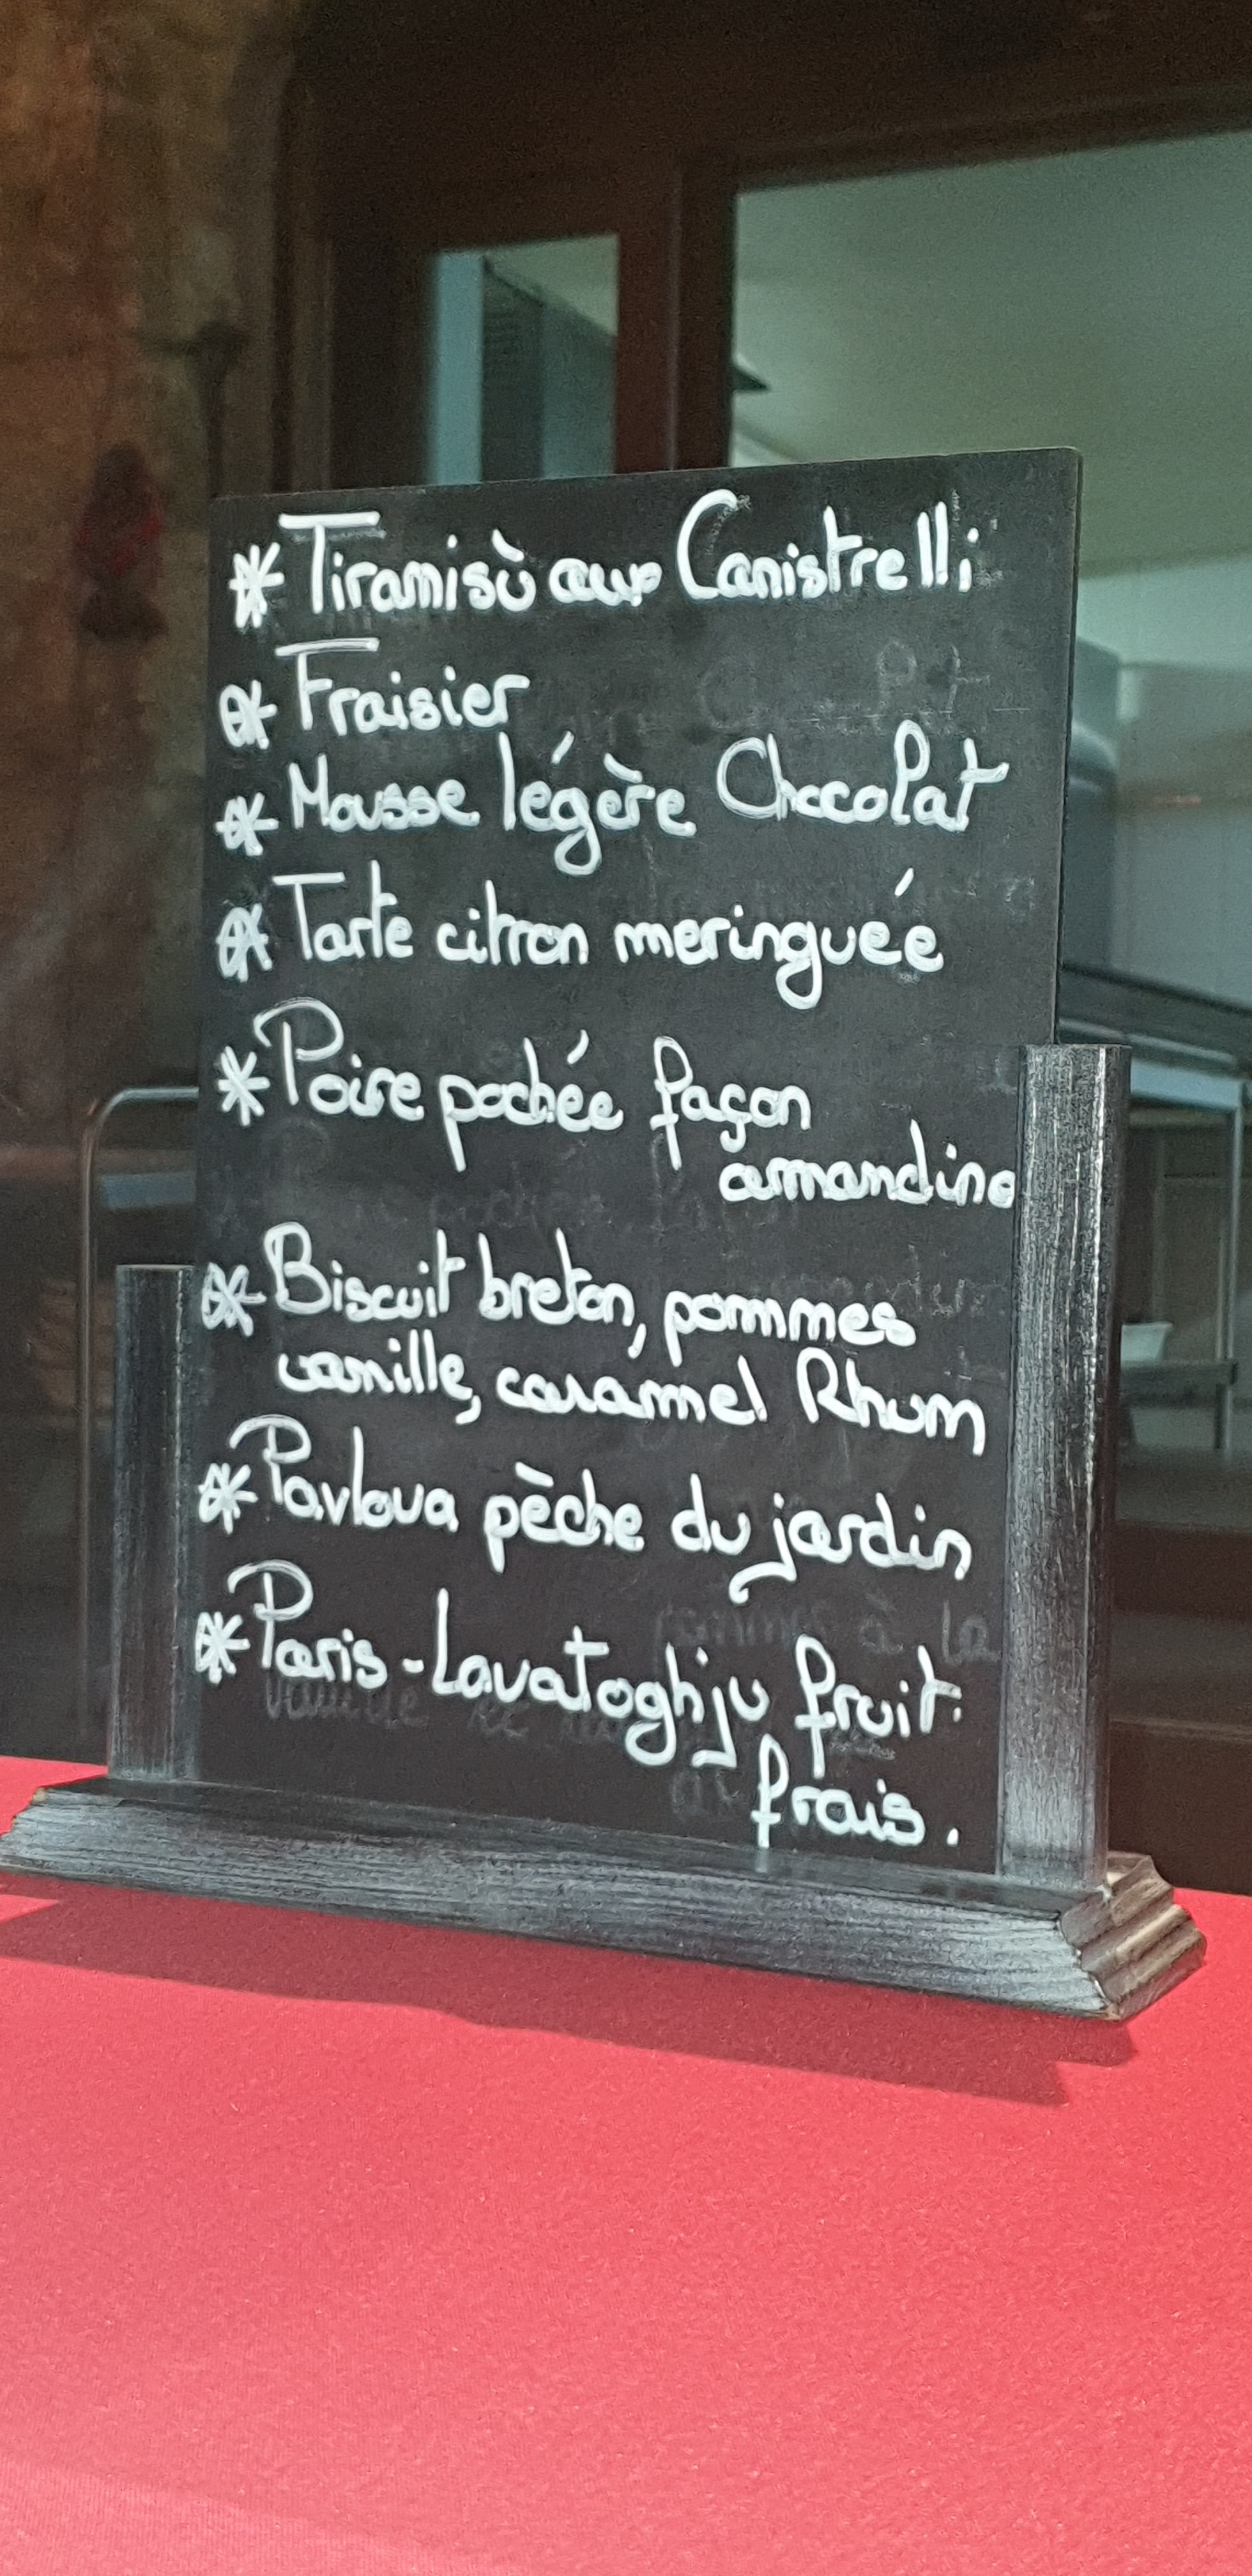 * Tiramisù aux Canistrelli
* Fraisier
* Mousse légère Chocolat
* Tarte citron meringuée
* Poire pochée façon
amandine
* Biscuit breton, pommes
vanille, caramel Rhum
* Pavlova pèche du jardin
* Paris-Lavatoghju fruit
frais.